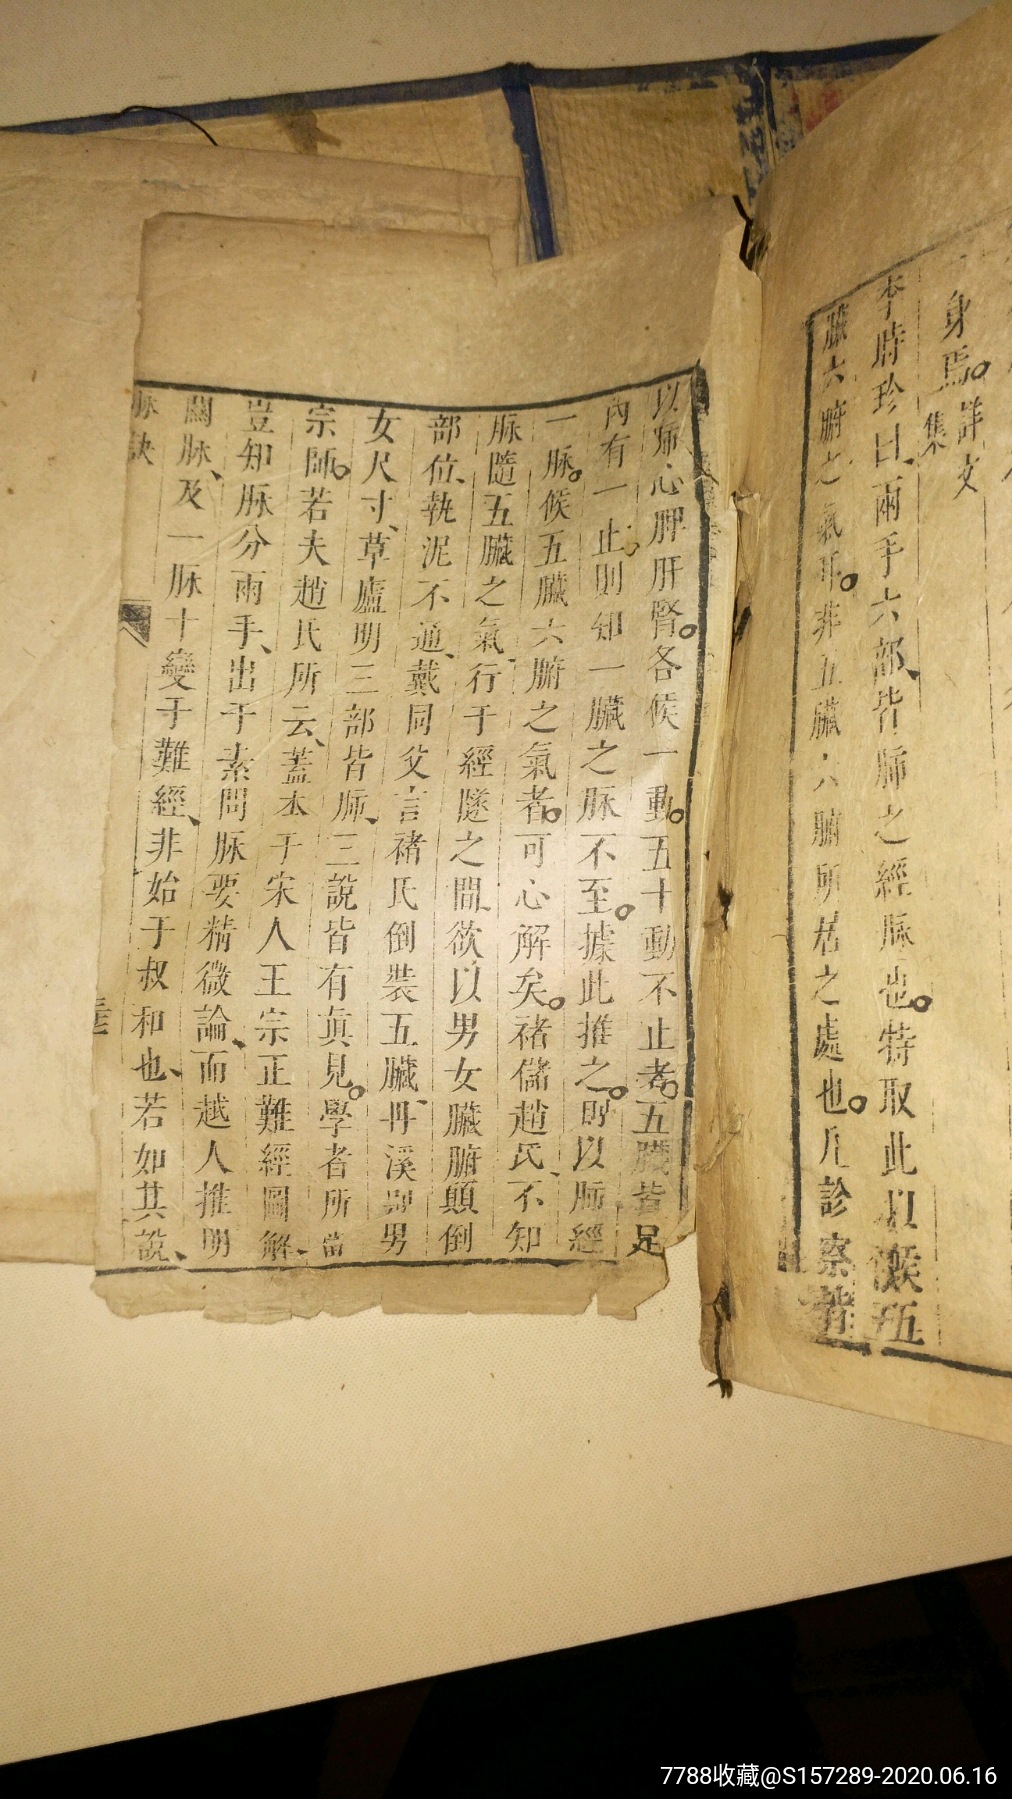 身焉詳文
集
李時珍曰兩手六部皆肺之經脉也特取此以候五
臟六腑之氣耳非五臟六腑所居之處也凡診察皆
以肺心脾肝腎各候一動五十動不止者五臟皆足
內有一止則知一臟之脉不至據此推之則以肺經
一脉候五臟六腑之氣者可心解矣褚儲趙氏不知
脉隨五臟之氣行于經隧之間欲以男女臟腑顛倒
部位執泥不通戴同父言褚氏倒裝五臟丹溪則男
女尺寸草廬明三部皆肺三說皆有真見學者所當
宗師若夫趙氏所云蓋本于宋人王宗正難經圖解
豈知脉分兩手出于素問脉要精微論而越人推明
關脉及一脉十變于難經非始于叔和也若如其說
脉訣
7788收藏@S157289-2020.06.16